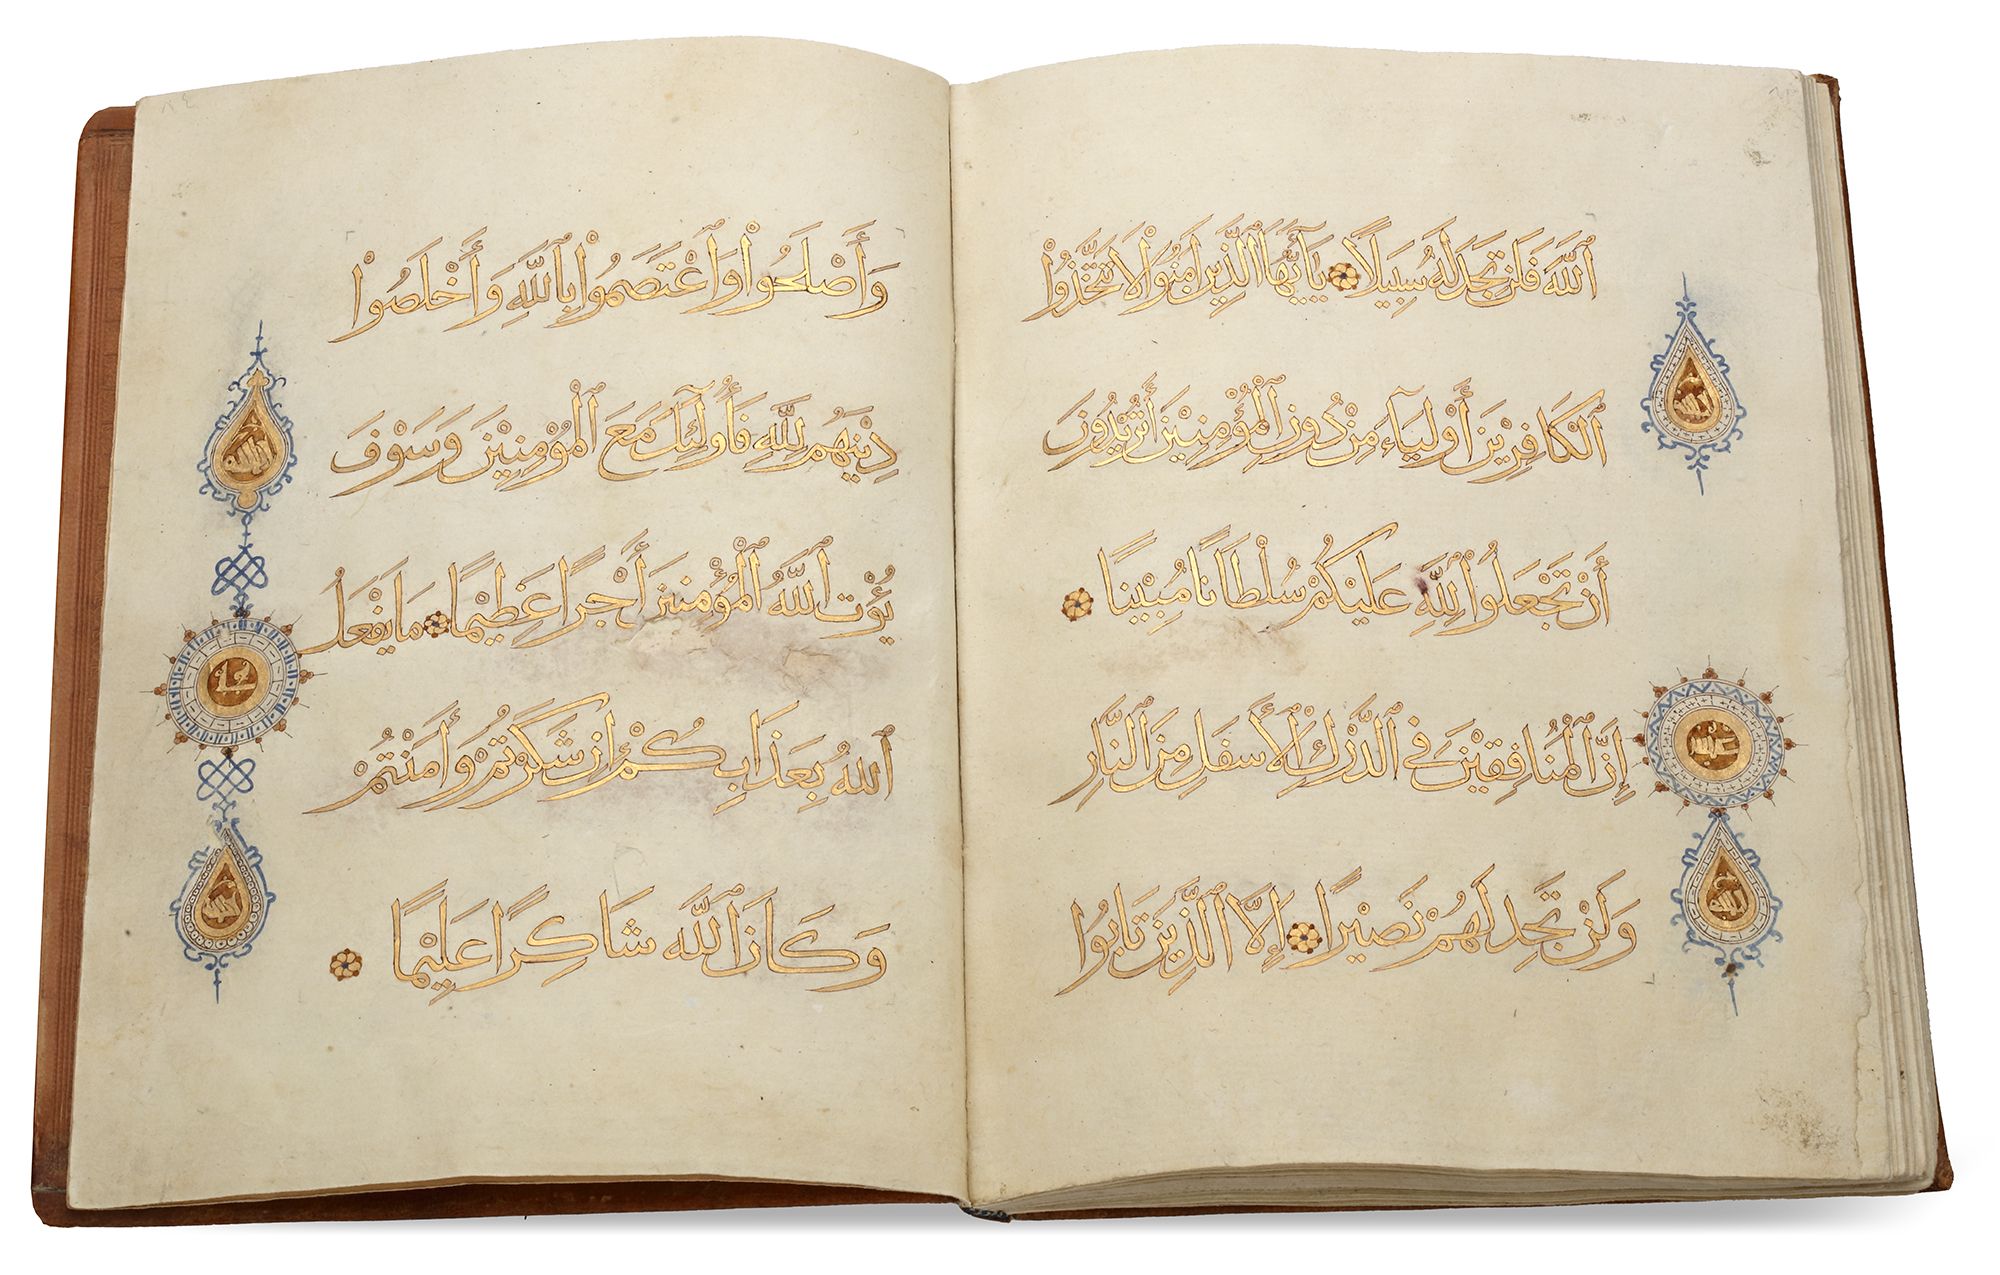 ٱللَّهُ فَلَن تَجِدَ لَهُ سَبِيلًا يَا أَيُّهَا ٱلَّذِينَ آمَنُوا لَا تَتَّخِذُوا
ٱلْكَافِرِينَ أَوْلِيَاءَ مِنْ دُونِ ٱلْمُؤْمِنِينَ أَتُرِيدُونَ
أَنْ تَجْعَلُوا لِلَّهِ عَلَيْكُمْ سُلْطَانًا مُبِينًا
إِنَّ ٱلْمُنَافِقِينَ فِي ٱلدَّرْكِ ٱلْأَسْفَلِ مِنَ ٱلنَّارِ
وَلَنْ تَجِدَ لَهُمْ نَصِيرًا إِلَّا ٱلَّذِينَ تَابُوا
وَأَصْلَحُوا وَٱعْتَصَمُوا بِٱللَّهِ وَأَخْلَصُوا
دِينَهُمْ لِلَّهِ فَأُولَئِكَ مَعَ ٱلْمُؤْمِنِينَ وَسَوْفَ
يُؤْتِ ٱللَّهُ ٱلْمُؤْمِنِينَ أَجْرًا عَظِيمًا مَا يَفْعَلُ
ٱللَّهُ بِعَذَابِكُمْ إِنْ شَكَرْتُمْ وَآمَنْتُمْ
وَكَانَ ٱللَّهُ شَاكِرًا عَلِيمًا